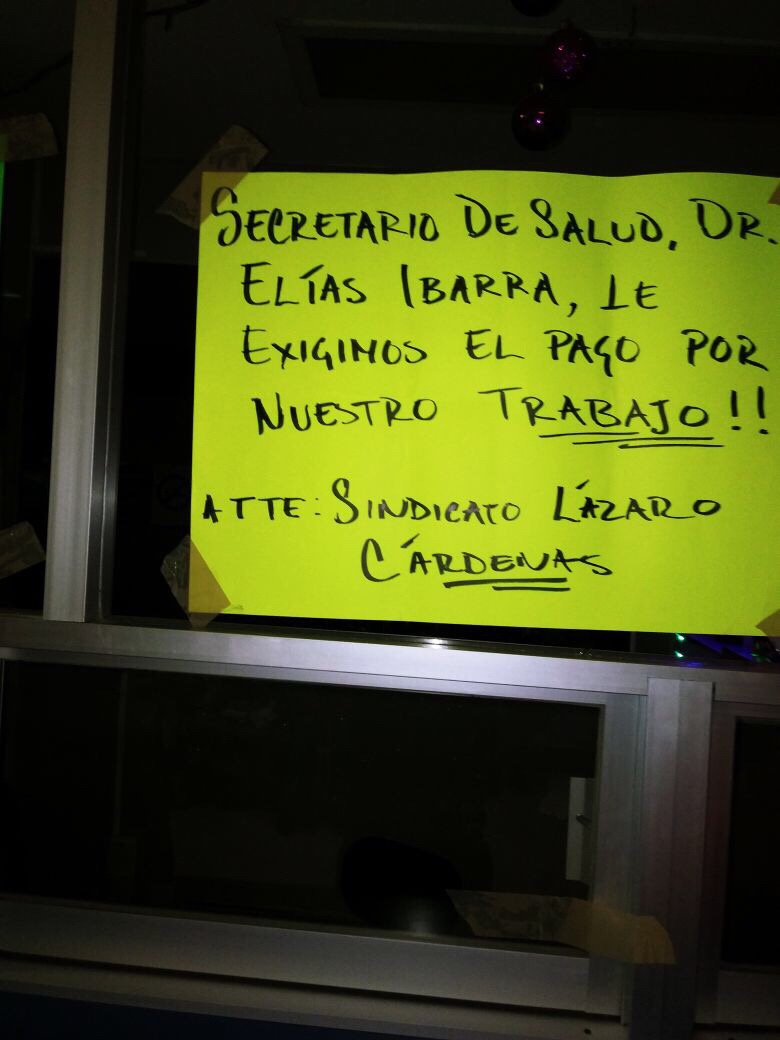 SECRETARIO DE SALUD, DR.
ELÍAS IBARRA, LE
EXIGIMOS EL PAGO POR
NUESTRO TRABAJO!!
ATTE: SINDICATO LÁZARO
CÁRDENAS